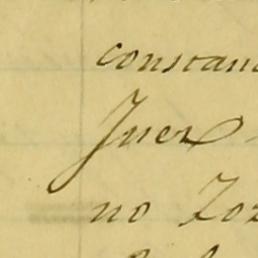 constan
Juez
no Zoz